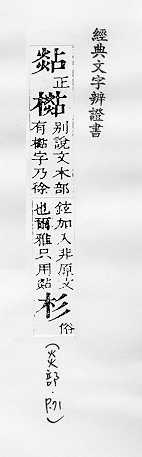 經典文字辨證書
煔正檆
別說文木部
有檆字乃徐
鉉加入非原文
也爾雅只用煔
杉俗
(炎部·P.71)